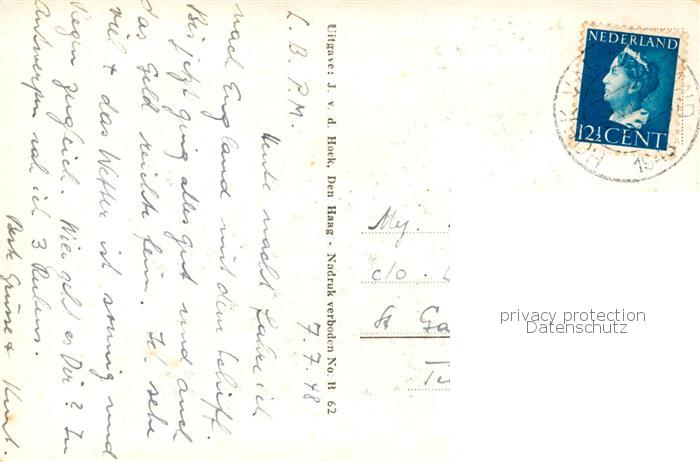 7.7.48
L. B. P. M.
Heute nacht fahre ich
nach England mit dem Schiff.
Bis jetzt ging alles gut und auch
das Geld reichte fein. Ich sehe
viel & das Wetter ist sonnig und
Regen zugleich. Wie geht es Dir? In
Antwerpen sah ich 3 Rubens.
Beste Grüsse & Kurt.
Uitgave: J. v. d. Hoek, Den Haag - Nadruk verboden No. B 62
NEDERLAND
12½ CENT
1948
Mej.
c/o
St Ga
privacy protection
Datenschutz